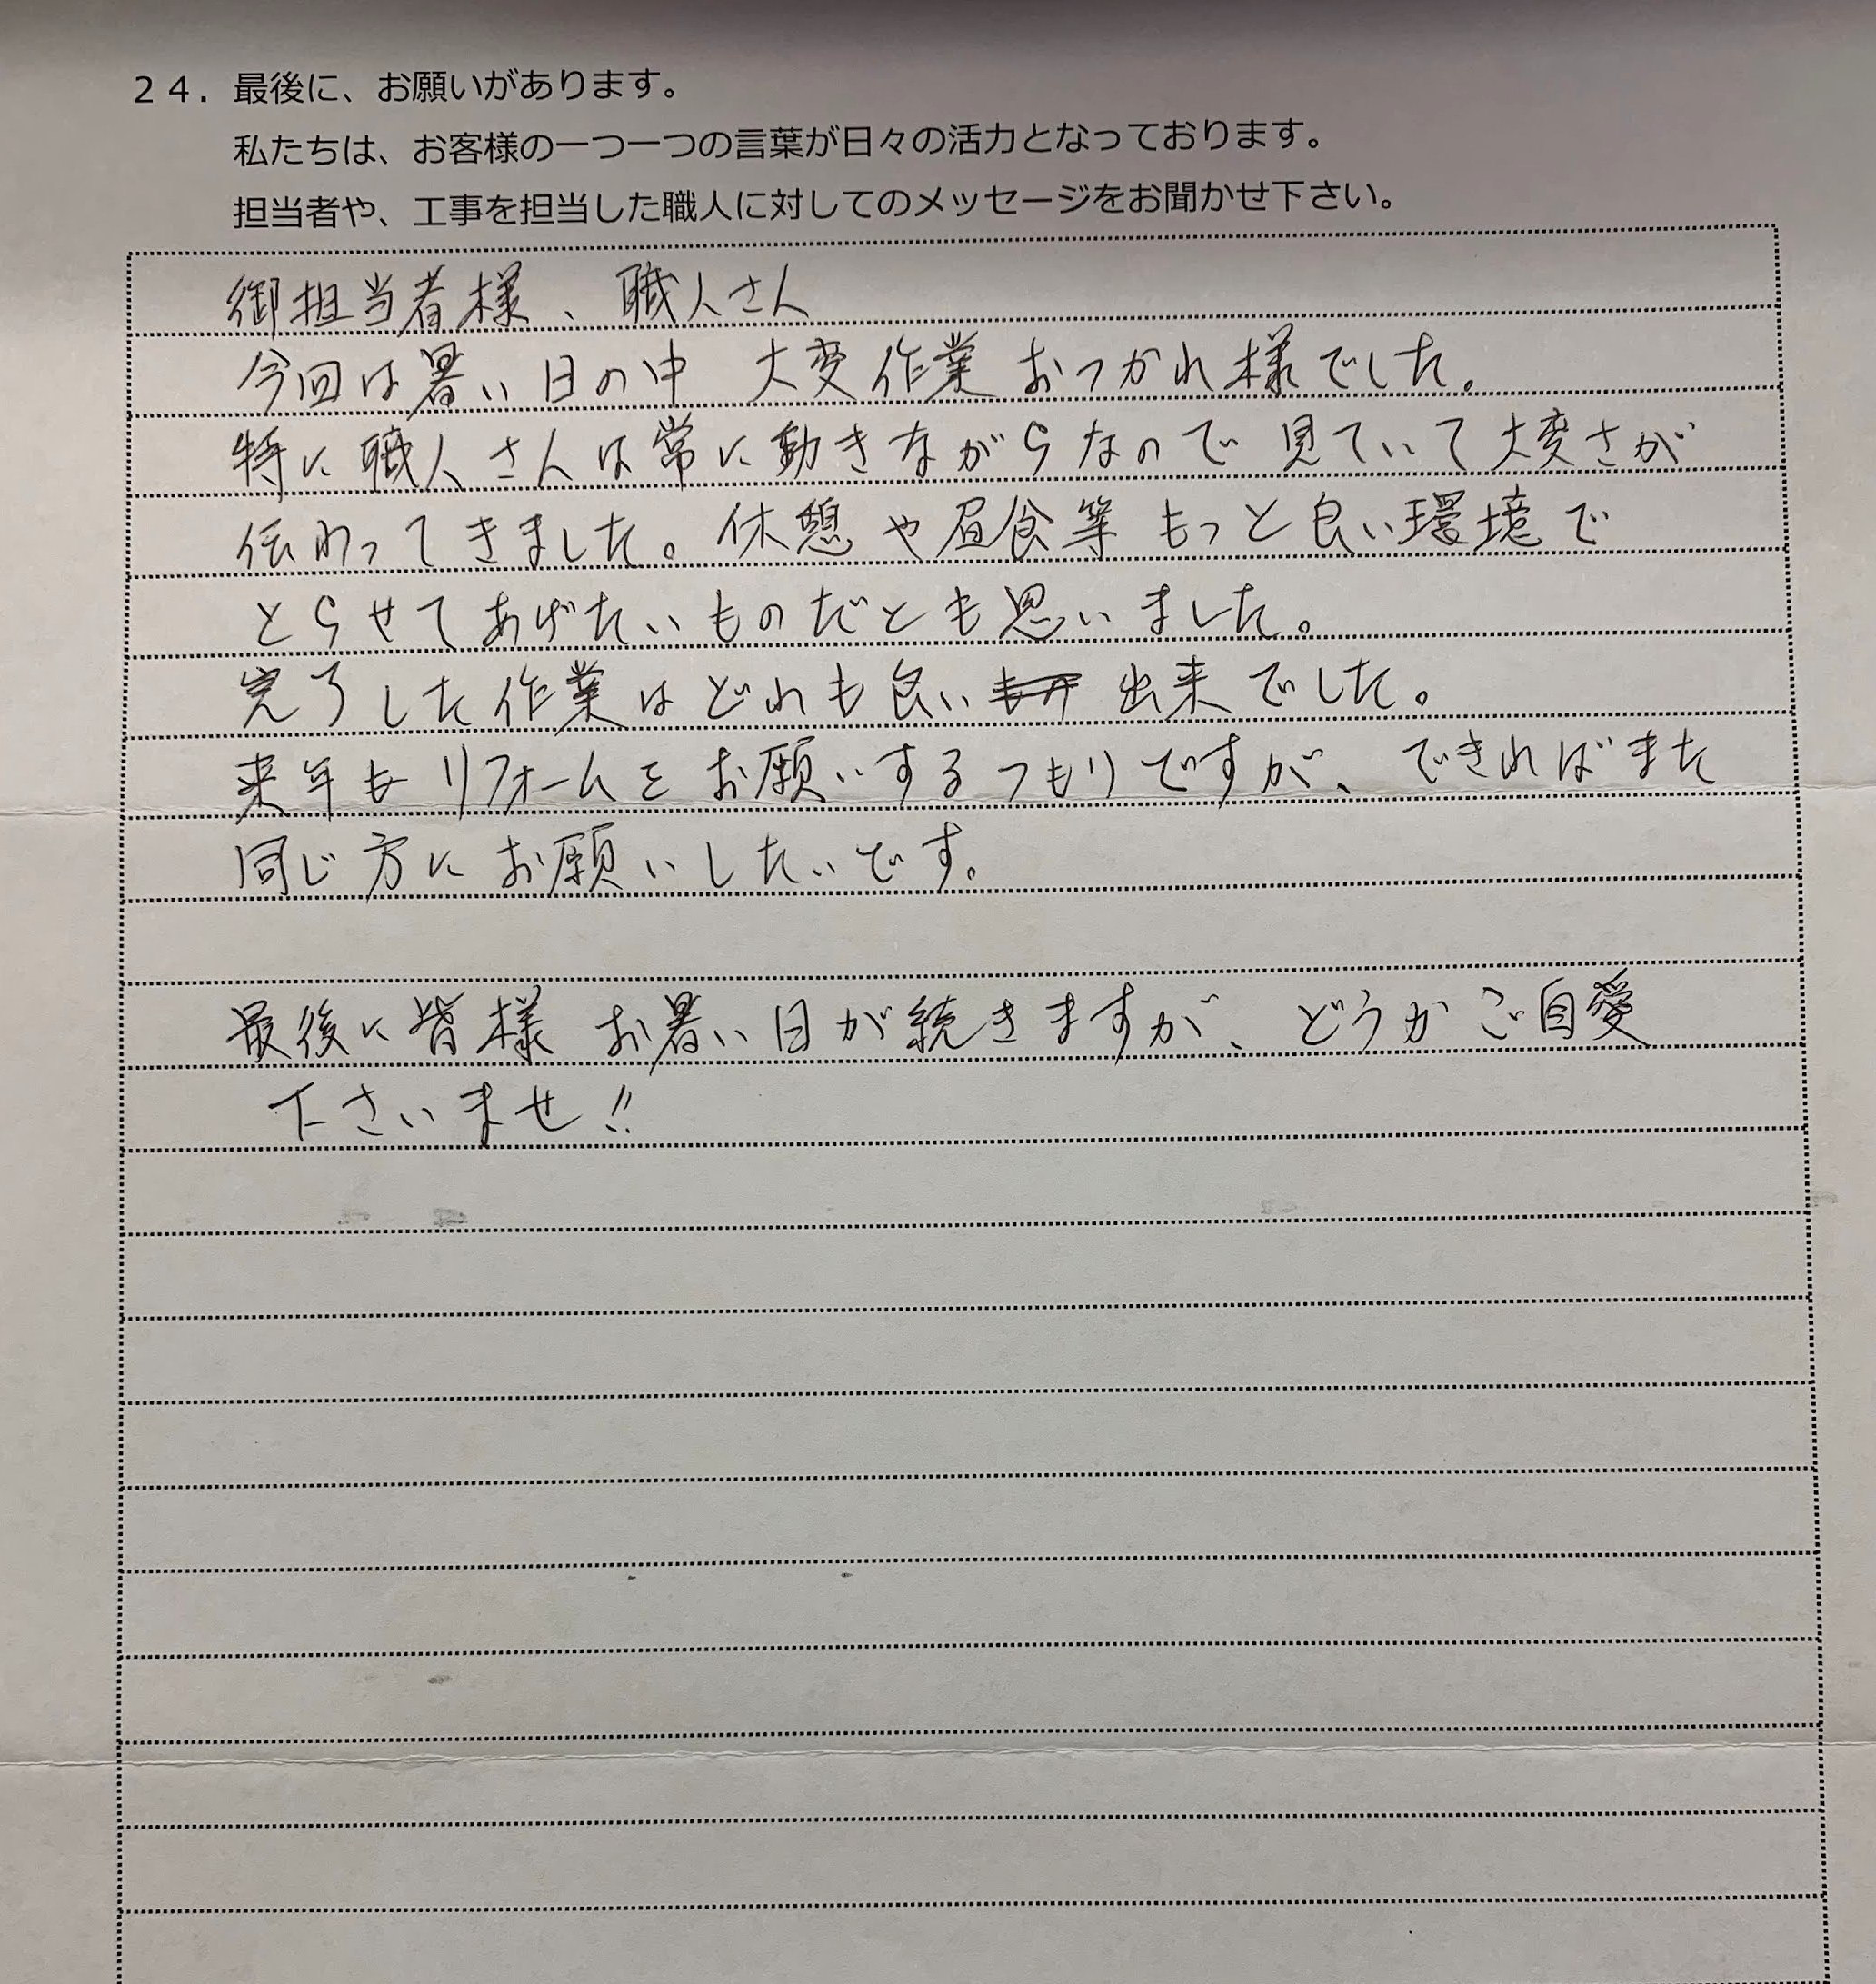 ２４．最後に、お願いがあります。
私たちは、お客様の一つ一つの言葉が日々の活力となっております。
担当者や、工事を担当した職人に対してのメッセージをお聞かせ下さい。
御担当者様、職人さん
今回は暑い日の中 大変作業おつかれ様でした。
特に職人さんは常に動きながらなので見ていて大変さが
伝わってきました。休憩や昼食等もっと良い環境で
とらせてあげたいものだとも思いました。
完了した作業はどれも良い出来でした。
来年もリフォームをお願いするつもりですが、できればまた
同じ方にお願いしたいです。
最後に皆様 お暑い日が続きますが、どうかご自愛
下さいませ!!